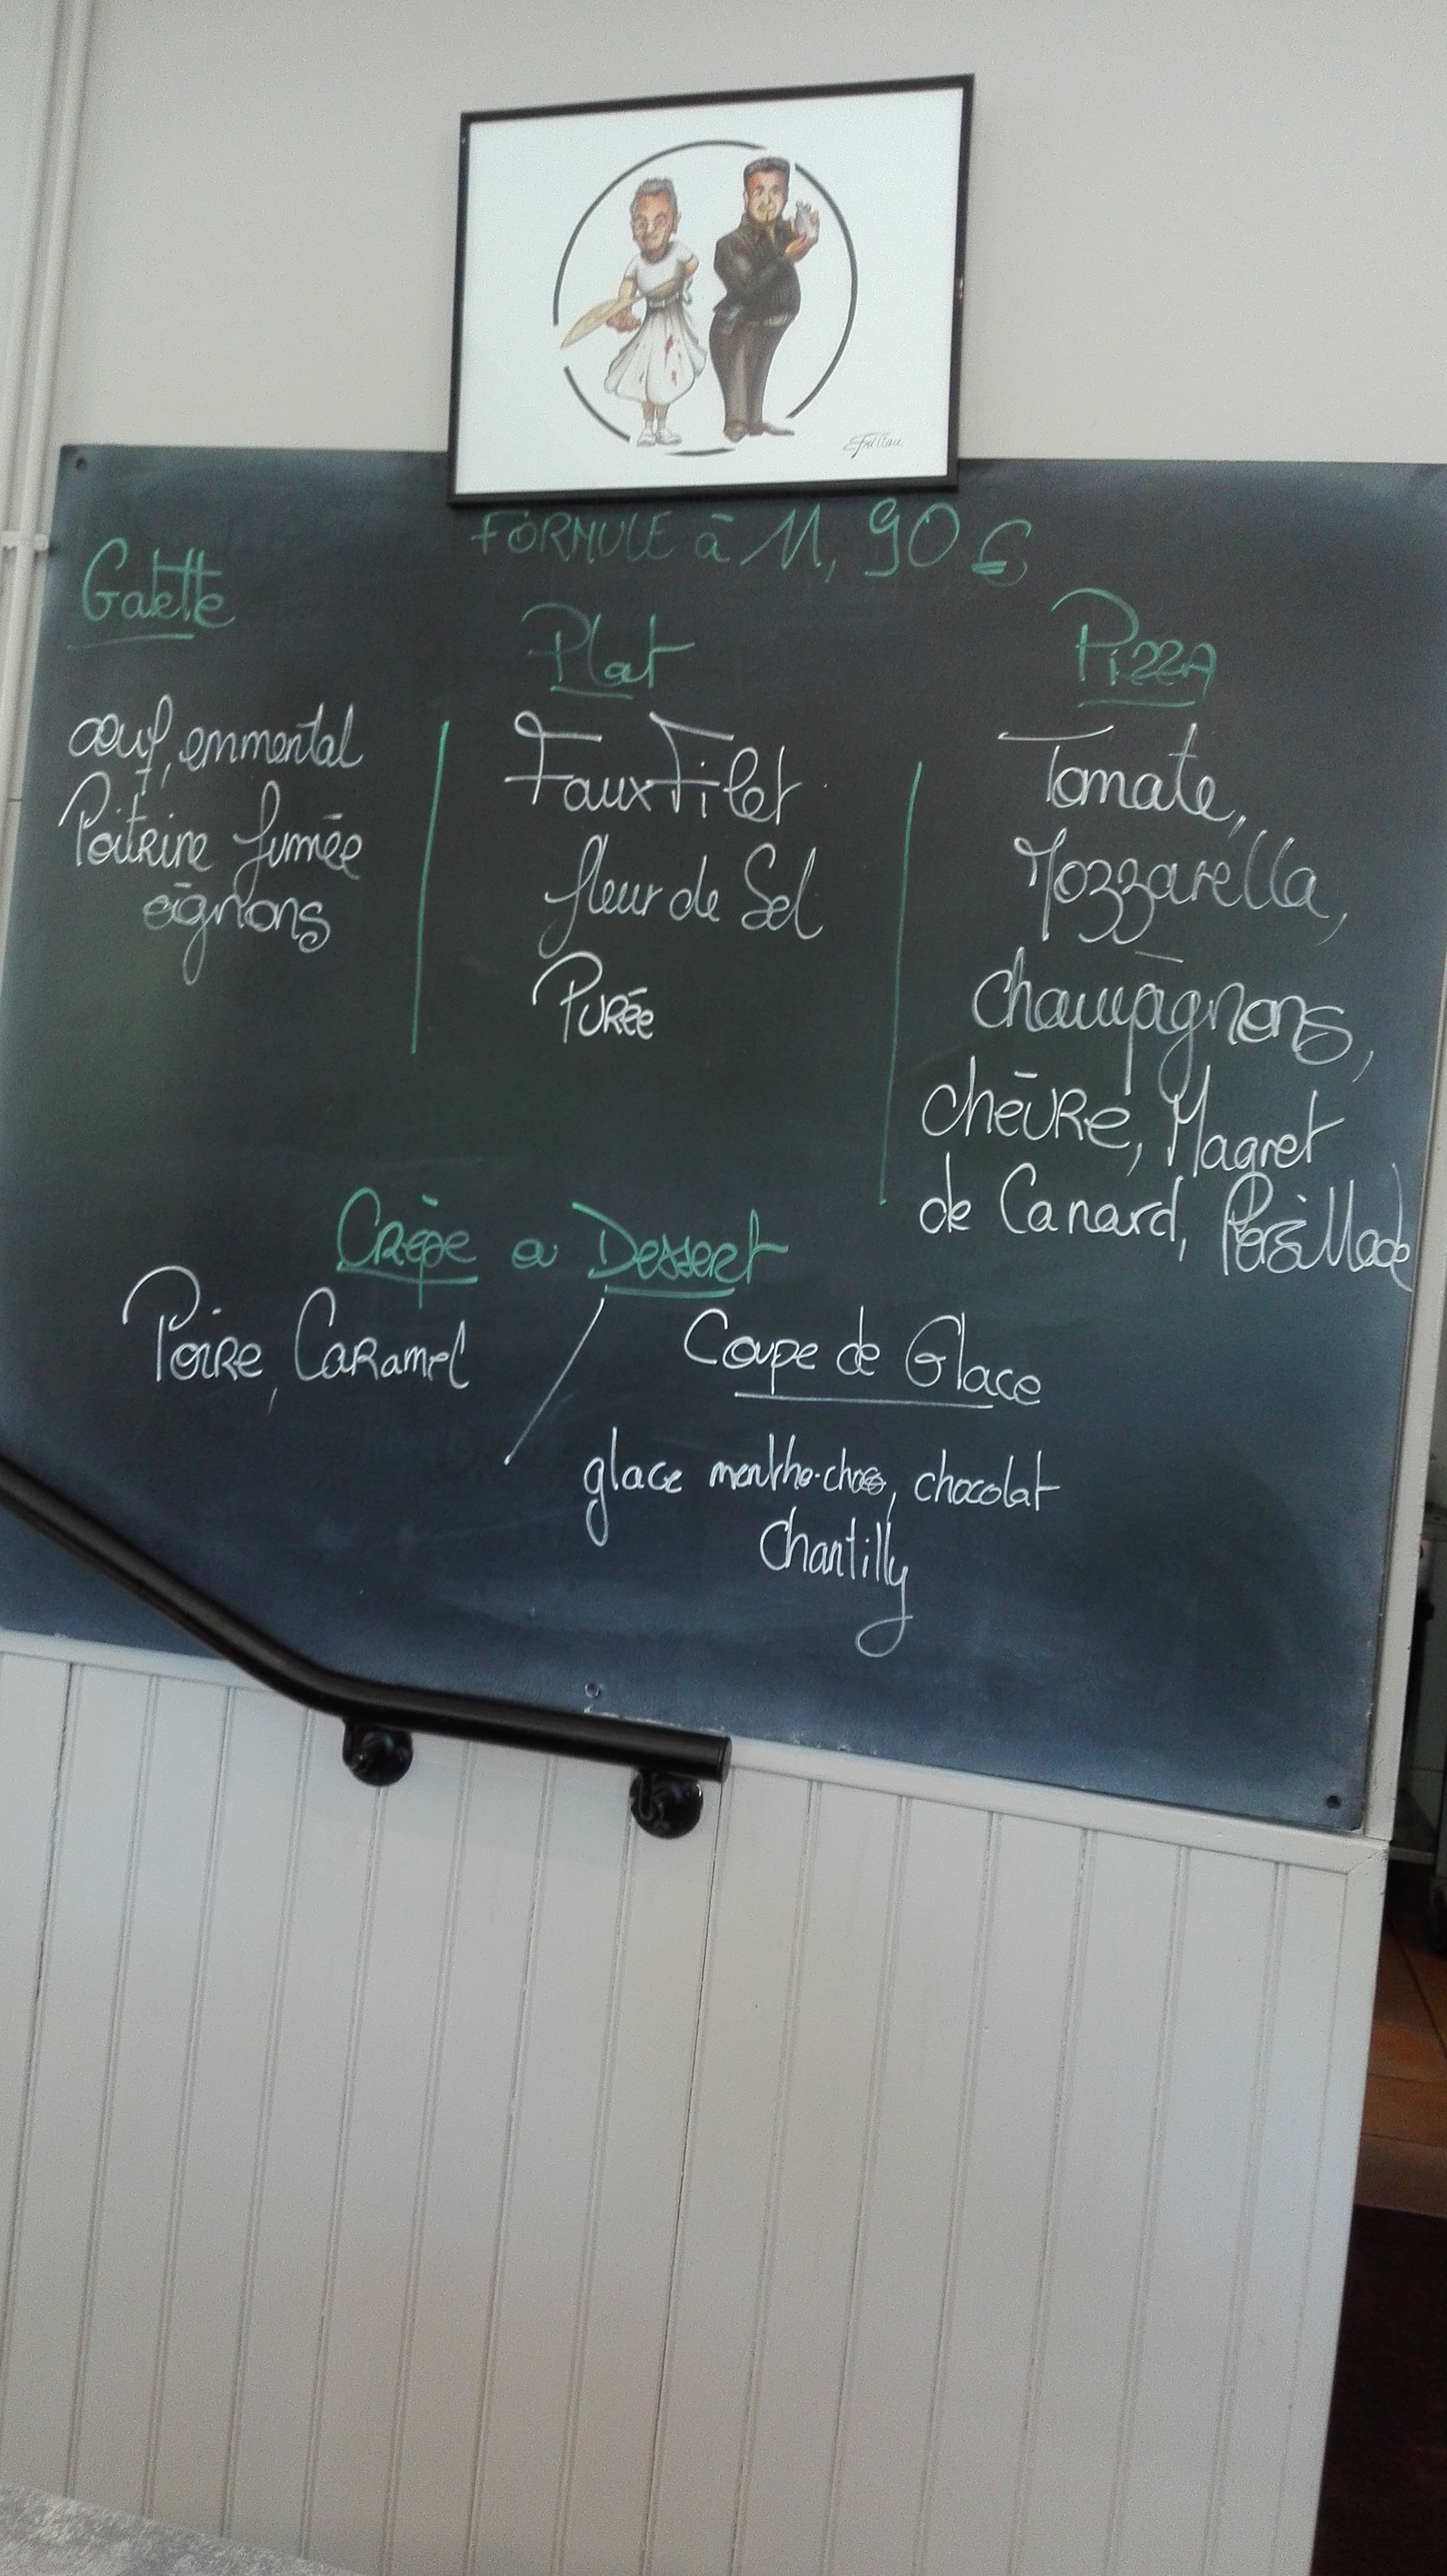 FORMULE à 11,90 €
Galette
œuf, emmental
Poitrine fumée
oignons
Plat
Faux Filet
fleur de Sel
Purée
Pizza
Tomate,
Mozzarella,
champignons,
chèvre, Magret
de Canard, Persillade
Crêpe ou Dessert
Poire, Caramel
Coupe de Glace
glace menthe-choco, chocolat
Chantilly